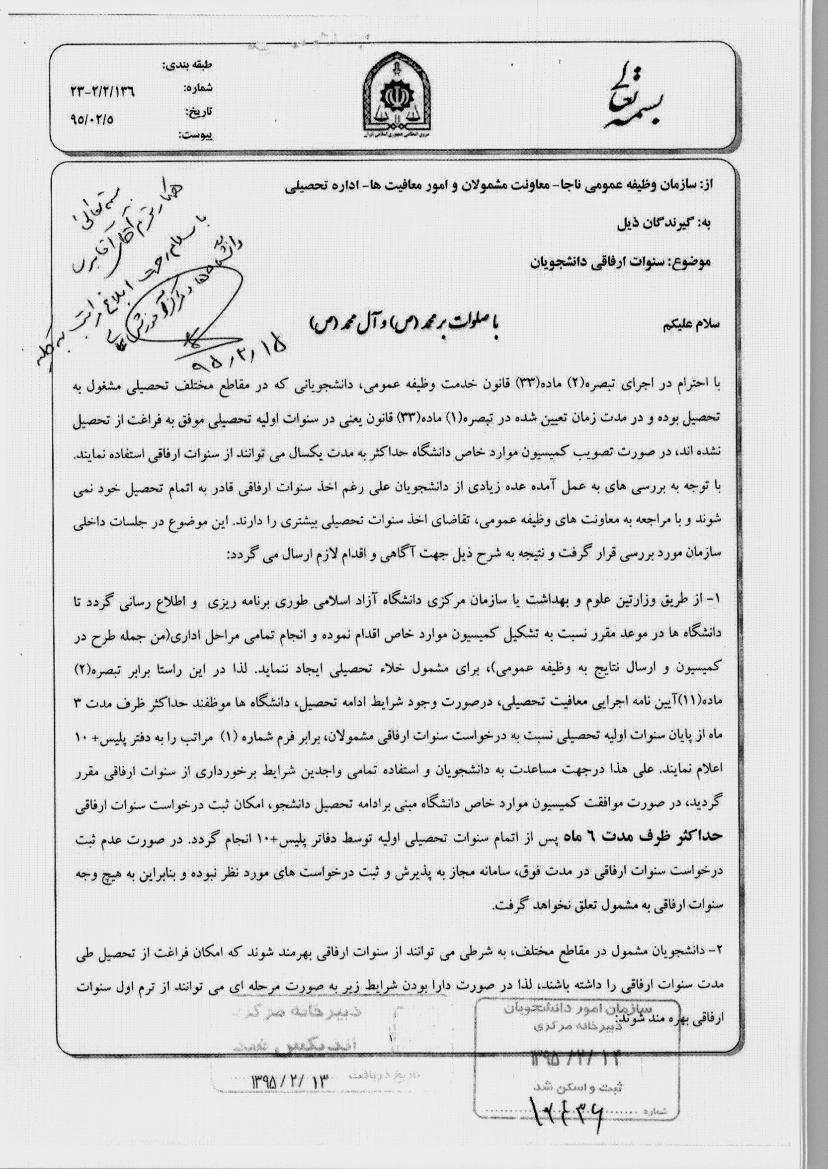 بسمه تعالی
نیروی انتظامی جمهوری اسلامی ایران
طبقه بندی:
شماره: ۲۳-۲/۲/۱۳۶
تاریخ: ۹۵/۰۲/۵
پیوست:
از: سازمان وظیفه عمومی ناجا- معاونت مشمولان و امور معافیت ها- اداره تحصیلی
به: گیرندگان ذیل
موضوع: سنوات ارفاقی دانشجویان
بسمه تعالی
همکار محترم آقای
با سلام، جهت ابلاغ مراتب به کلیه
دانشگاه ها و مراکز آموزش عالی
۹۵/۲/۱۵
سلام علیکم
با صلوات بر محمد (ص) و آل محمد (ص)
با احترام در اجرای تبصره(۲) ماده(۳۳) قانون خدمت وظیفه عمومی، دانشجویانی که در مقاطع مختلف تحصیلی مشغول به
تحصیل بوده و در مدت زمان تعیین شده در تبصره(۱) ماده(۳۳) قانون یعنی در سنوات اولیه تحصیلی موفق به فراغت از تحصیل
نشده اند، در صورت تصویب کمیسیون موارد خاص دانشگاه حداکثر به مدت یکسال می توانند از سنوات ارفاقی استفاده نمایند.
با توجه به بررسی های به عمل آمده عده زیادی از دانشجویان علی رغم اخذ سنوات ارفاقی قادر به اتمام تحصیل خود نمی
شوند و با مراجعه به معاونت های وظیفه عمومی، تقاضای اخذ سنوات تحصیلی بیشتری را دارند. این موضوع در جلسات داخلی
سازمان مورد بررسی قرار گرفت و نتیجه به شرح ذیل جهت آگاهی و اقدام لازم ارسال می گردد:
۱- از طریق وزارتین علوم و بهداشت یا سازمان مرکزی دانشگاه آزاد اسلامی طوری برنامه ریزی و اطلاع رسانی گردد تا
دانشگاه ها در موعد مقرر نسبت به تشکیل کمیسیون موارد خاص اقدام نموده و انجام تمامی مراحل اداری(من جمله طرح در
کمیسیون و ارسال نتایج به وظیفه عمومی)، برای مشمول خلاء تحصیلی ایجاد ننماید. لذا در این راستا برابر تبصره(۲)
ماده(۱۱)آیین نامه اجرایی معافیت تحصیلی، درصورت وجود شرایط ادامه تحصیل، دانشگاه ها موظفند حداکثر ظرف مدت ۳
ماه از پایان سنوات اولیه تحصیلی نسبت به درخواست سنوات ارفاقی مشمولان، برابر فرم شماره (۱) مراتب را به دفتر پلیس+ ۱۰
اعلام نمایند. علی هذا درجهت مساعدت به دانشجویان و استفاده تمامی واجدین شرایط برخورداری از سنوات ارفاقی مقرر
گردید، در صورت موافقت کمیسیون موارد خاص دانشگاه مبنی برادامه تحصیل دانشجو، امکان ثبت درخواست سنوات ارفاقی
حداکثر ظرف مدت ۶ ماه پس از اتمام سنوات تحصیلی اولیه توسط دفاتر پلیس+۱۰ انجام گردد. در صورت عدم ثبت
درخواست سنوات ارفاقی در مدت فوق، سامانه مجاز به پذیرش و ثبت درخواست های مورد نظر نبوده و بنابراین به هیچ وجه
سنوات ارفاقی به مشمول تعلق نخواهد گرفت.
۲- دانشجویان مشمول در مقاطع مختلف، به شرطی می توانند از سنوات ارفاقی بهرمند شوند که امکان فراغت از تحصیل طی
مدت سنوات ارفاقی را داشته باشند، لذا در صورت دارا بودن شرایط زیر به صورت مرحله ای می توانند از ترم اول سنوات
ارفاقی بهره مند شوند:
۱
سازمان امور دانشجویان
دبیرخانه مرکزی
۱۳۹۵/۲/۱۴
ثبت و اسکن شد
شماره
دبیرخانه مرکزی
تاریخ دریافت
۱۳۹۵/۲/۱۳